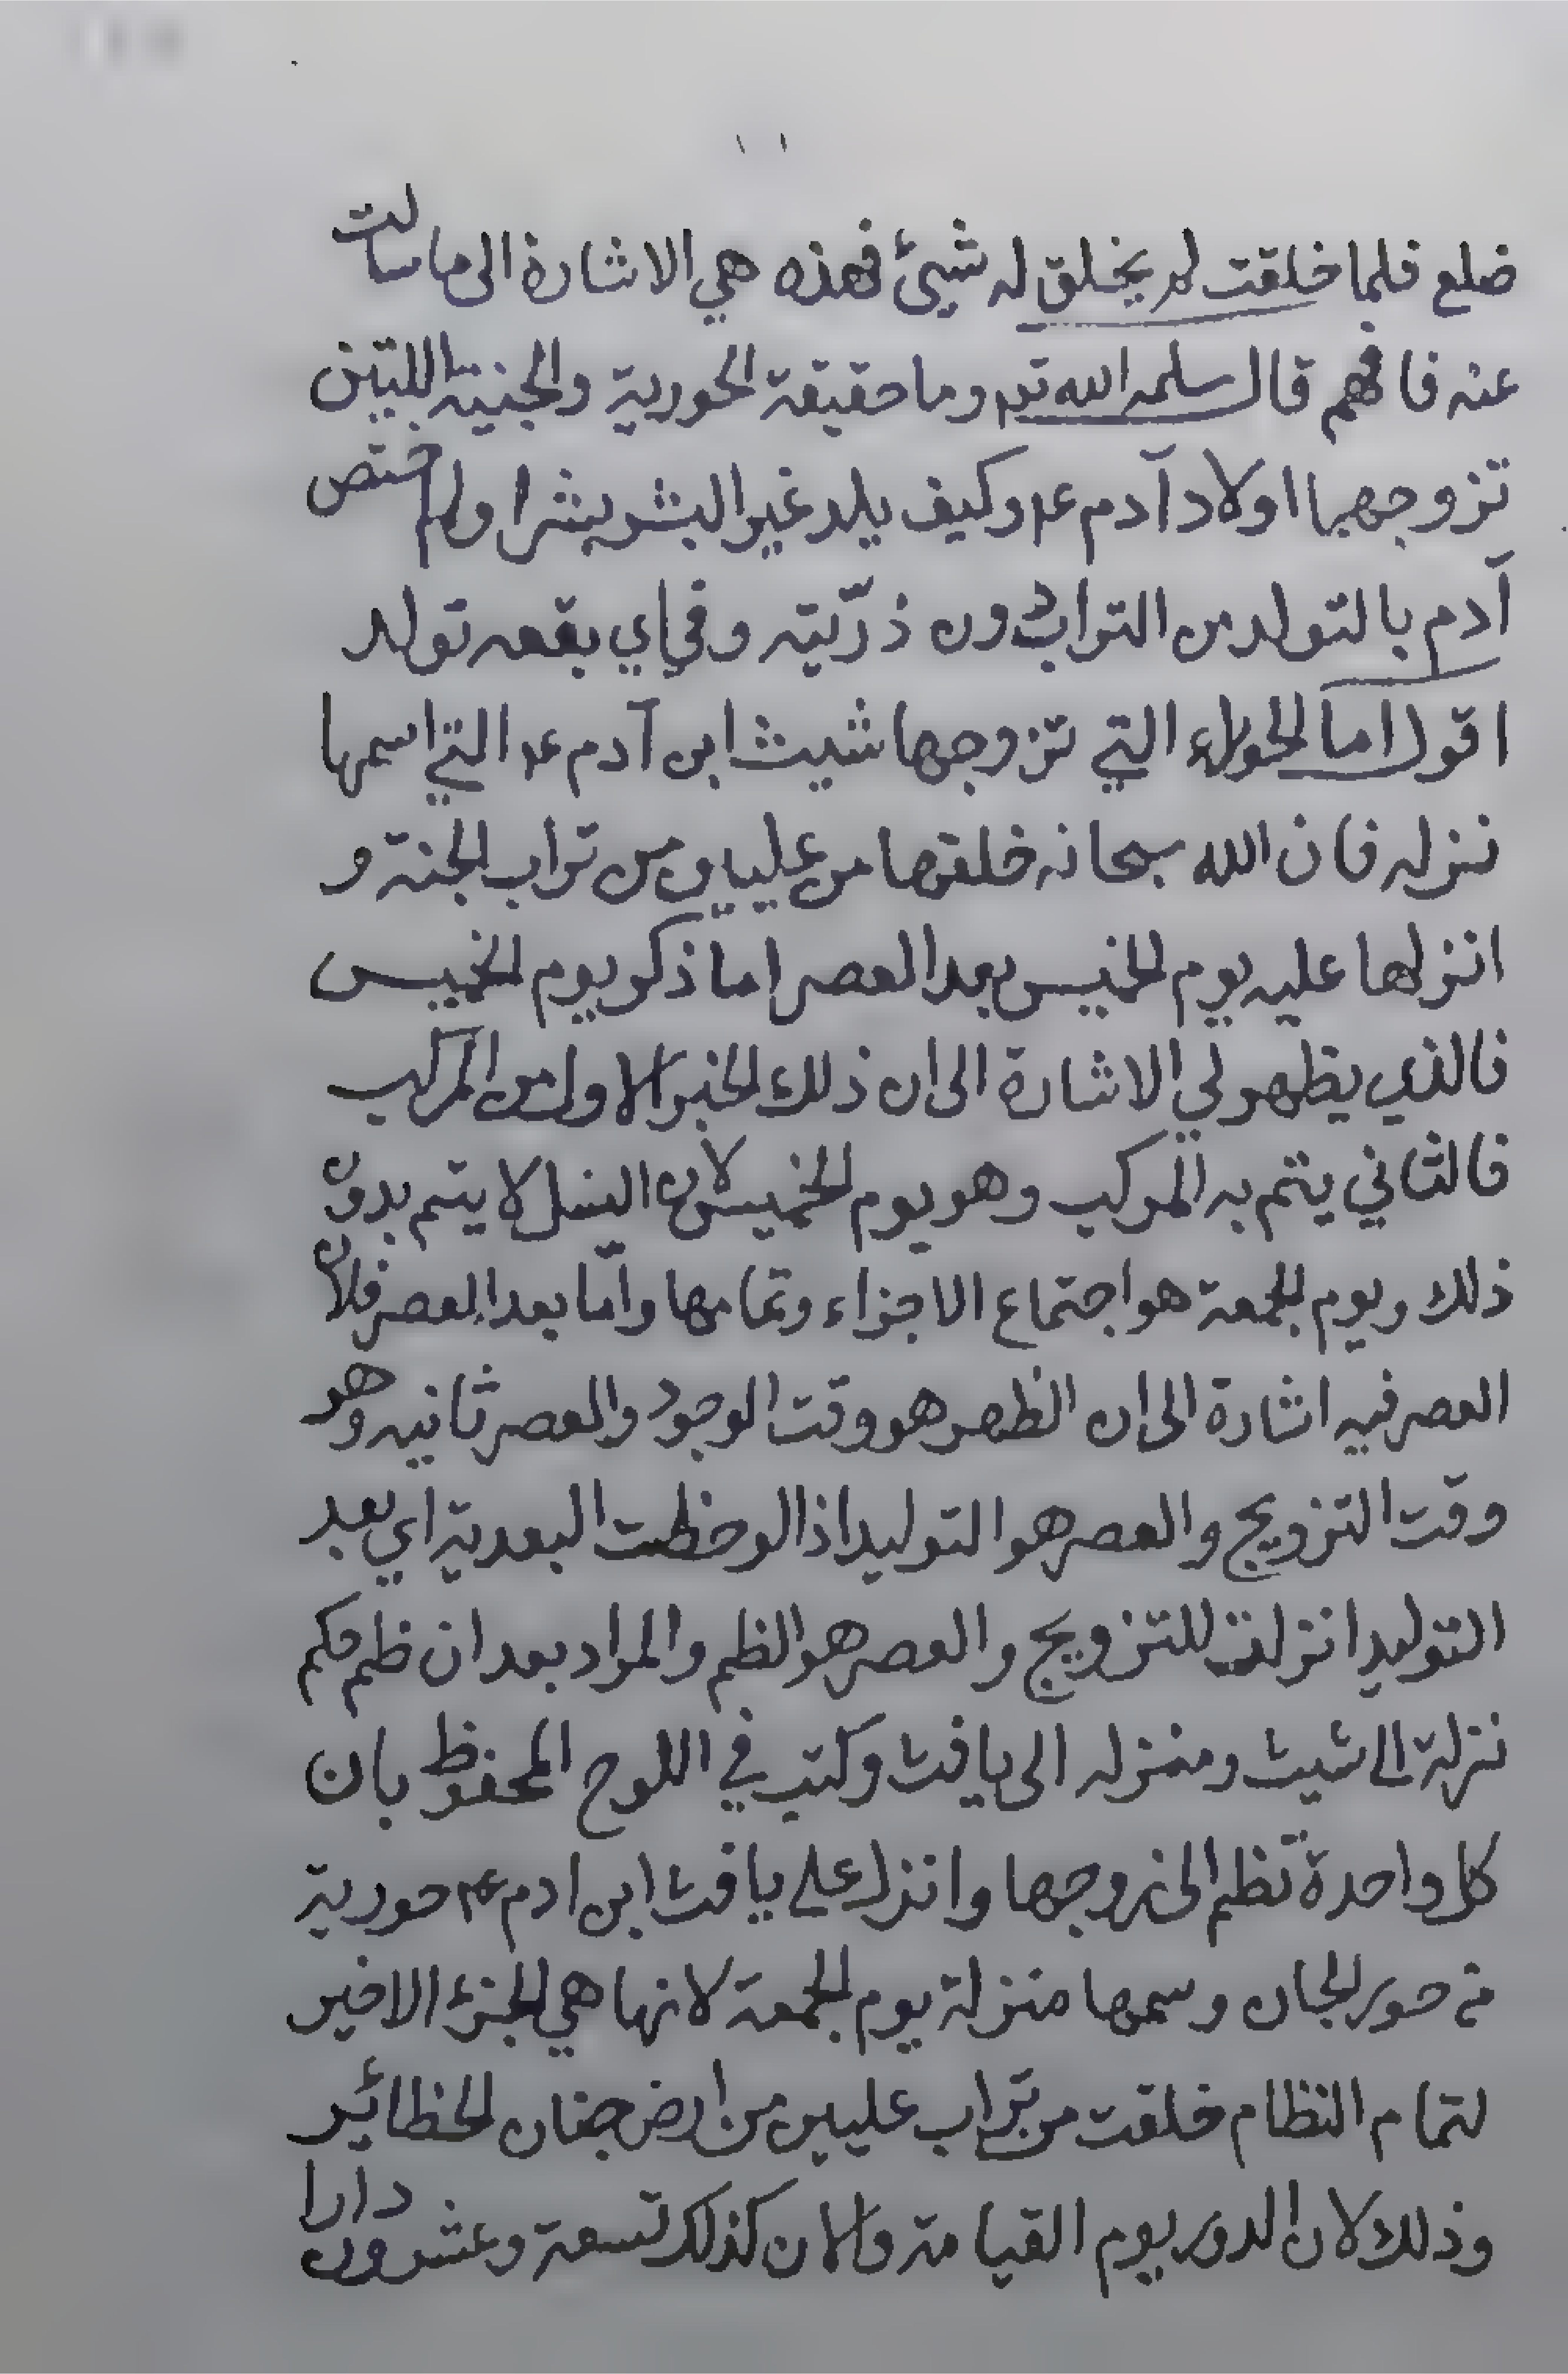 ١١
ضلع فلما خلقت لم يخلق له شيئ فهذه هي الاشارة الى ما سالت
عنه فافهم قال سلمه الله تع وما حقيقة الحورية والجنية اللتين
تزوجهما اولاد آدم ع وكيف يلد غير البشر بشرا ولم اختص
آدم بالتولد من التراب دون ذرّيته وفي اي بقعه تولد
اقول اما الحوراء التي تزوجها شيث ابن آدم ع التي اسمها
نزله فان الله سبحانه خلقها من عليين من تراب الجنة و
انزلها عليه يوم الخميس بعد العصر اما ذكر يوم الخميس
فالذي يظهر لي الاشارة الى ان ذلك الجزء الاول من المركب
فالثاني يتم به المركب وهو يوم الخميس لان النسل لا يتم بدون
ذلك ويوم الجمعة هو اجتماع الاجزاء وتمامها وامّا بعد العصر فلان
العصر فيه اشارة الى ان الظهر هو وقت الوجود والعصر ثانيه وهو
وقت التزويج والعصر هو التوليد اذا لوحظت البعدية اي بعد
التوليد انزلت للتزويج والعصر هو النظم والمراد بعد ان نظم حكم
نزلة الى شيث ومنزله الى يافث وكتب في اللوح المحفوظ بان
كل واحدة تنظم الى زوجها وانزل على يافث ابن ادم ع حورية
من حور الجان وسمها منزلة يوم الجمعة لانها هي الجزء الاخير
لتمام النظام خلقت من تراب عليين من ارض جنان الحظائر
وذلك لان الدور يوم القيامة والان كذلك تسعة وعشرون دارا